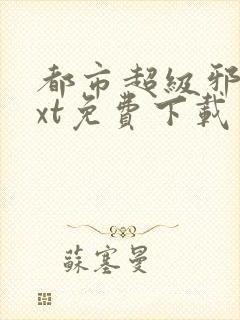 都市超級邪
xt免費下載
蘇塞曼